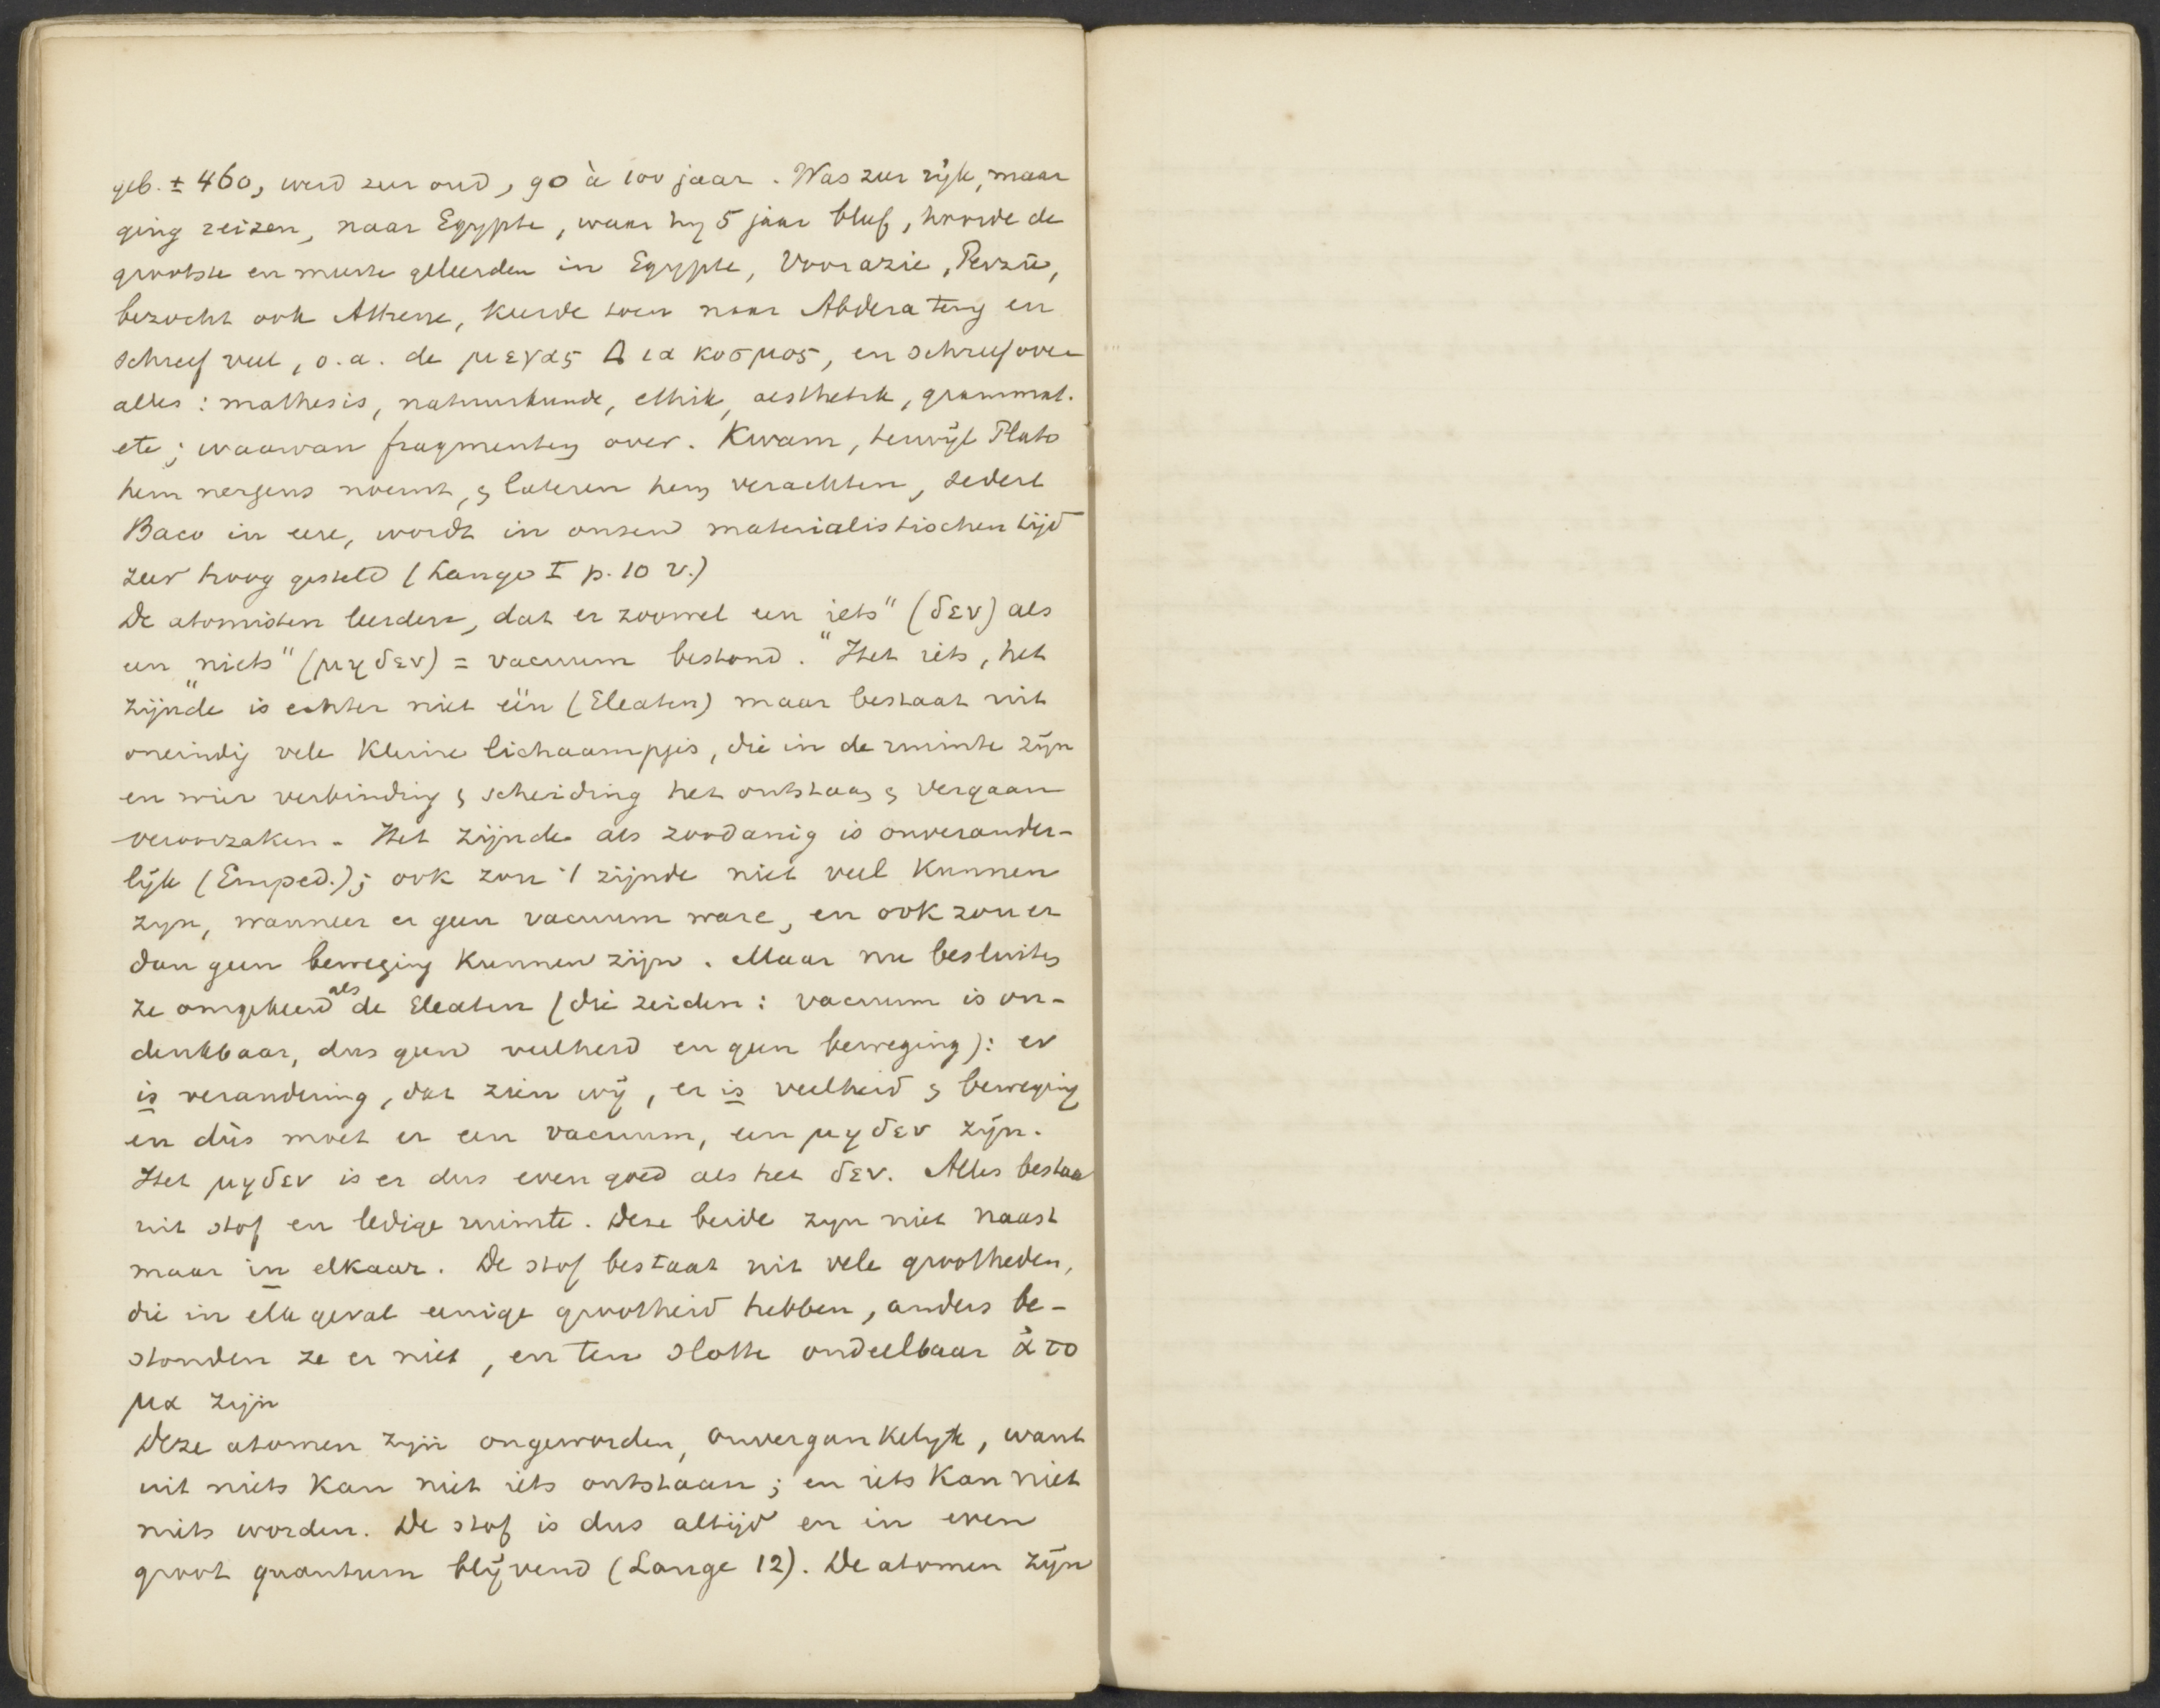 geb. ± 460, werd zeer oud, 90 à 100 jaar. Was zeer rijk, maar
ging reizen, naar Egypte, waar hij 5 jaar bleef, hoorde de
grootste en meeste geleerden in Egypte, Voorazië, Perzië,
bezocht ook Athene, keerde toen naar Abdera terug en
schreef veel, o.a. de μεγας Δια κοσμος, en schreef over
alles: mathesis, natuurkunde, ethik, aesthetik, grammat.
etc; waarvan fragmenten over. Kwam, terwijl Plato
hem nergens noemt, & lateren hem verachtten, sedert
Baco in eere, wordt in onzen materialistischen tijd
zeer hoog gesteld (Lange I p. 10 v.)
De atomisten leerden, dat er zoowel een "iets" (δεν) als
een "niets" (μηδεν) = vacuum bestond. Het iets, het
zijnde is echter niet één (Eleaten) maar bestaat uit
oneindig vele kleine lichaampjes, die in de ruimte zijn
en wier verbinding & scheiding het ontstaan & vergaan
veroorzaken. Het zijnde als zoodanig is onverander-
lijk (Emped.); ook zou 't zijnde niet veel kunnen
zijn, wanneer er geen vacuum ware, en ook zou er
dan geen beweging kunnen zijn. Maar nu besluiten
ze omgekeerd als de Eleaten (die zeiden: vacuum is on-
denkbaar, dus geen veelheid en geen beweging): er
is verandering, dat zien wij, er is veelheid & beweging
en dùs moet er een vacuum, een μηδεν zijn.
Het μηδεν is er dus even goed als het δεν. Alles bestaa
uit stof en ledige ruimte. Deze beide zijn niet naast
maar in elkaar. De stof bestaat uit vele grootheden,
die in elk geval eenige grootheid hebben, anders be-
stonden ze er niet, en ten slotte ondeelbaar ἀτο
μα zijn
Deze atomen zijn ongeworden, onvergankelijk, want
uit niets kan niet iets ontstaan; en iets kan niet
niets worden. De stof is dus altijd en in even
groot quantum blijvend (Lange 12). De atomen zijn